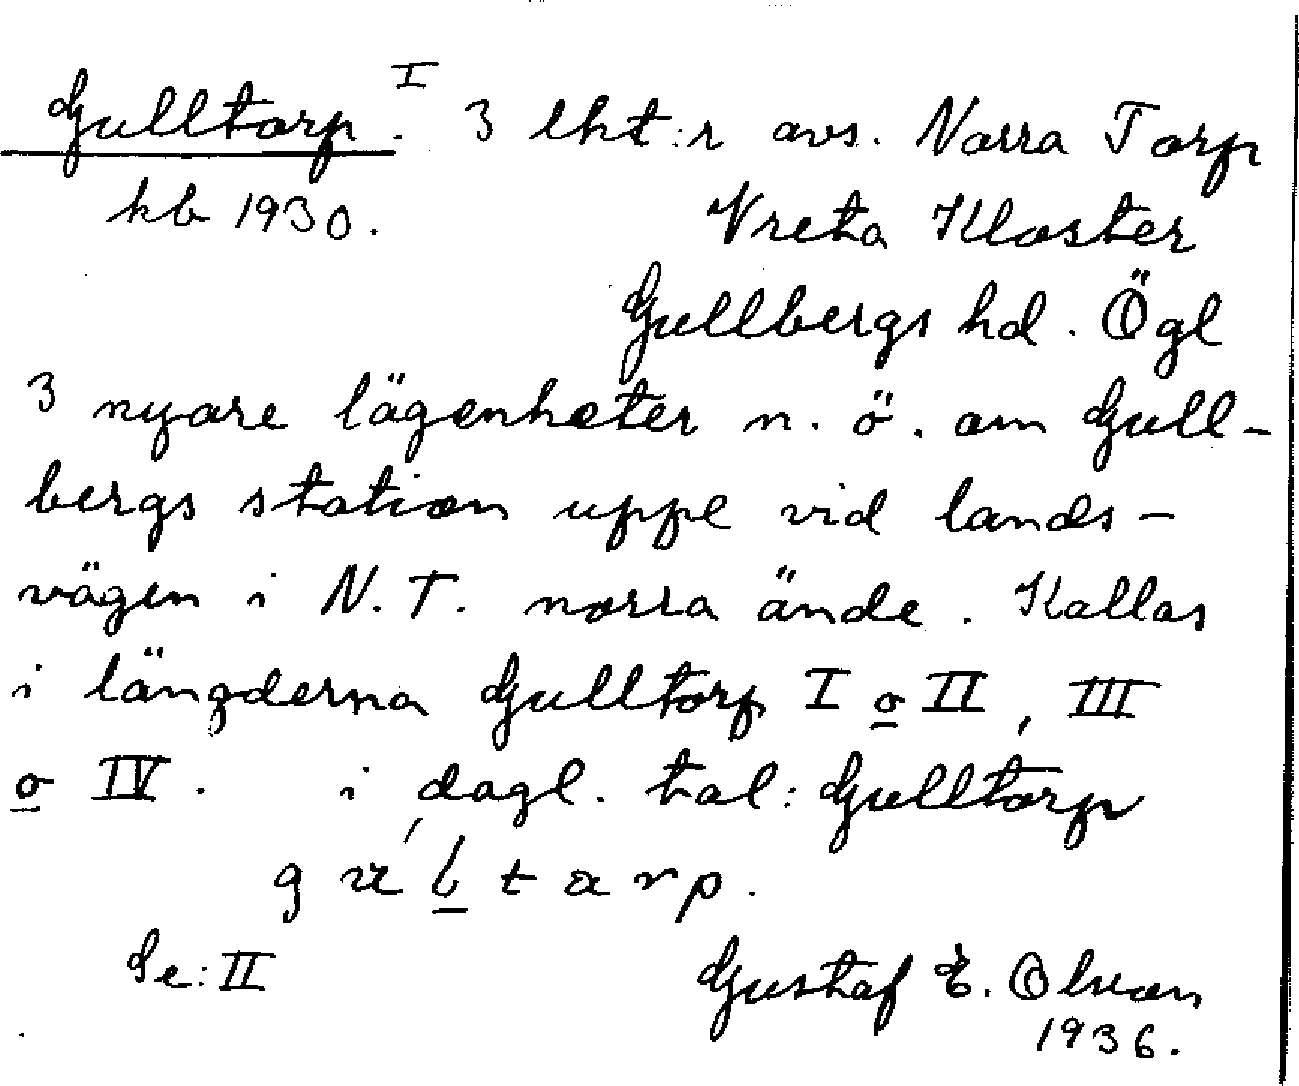 Gulltorp. I 3 lht:r avs. Norra Torp
kb 1930. Vreta Kloster
Gullbergs hd. Ögl
3 nyare lägenheter n. ö. om Gull-
bergs station uppe vid lands-
vägen i N. T. norra ände. Kallas
i längderna Gulltorp I o II, III
o IV. i dagl. tal: Gulltorp
Se: II Gustaf E. Olson
1936.